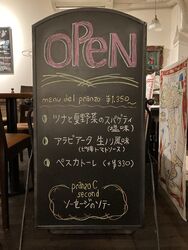 OPEN
menu del pranzo ¥1,350
ツナと夏野菜のスパゲティ
(塩味)
アラビアータ 生ハム風味
(ピリ辛トマトソース)
ペスカトーレ (+¥330)
pranzo C
second
ソーセージのソテー